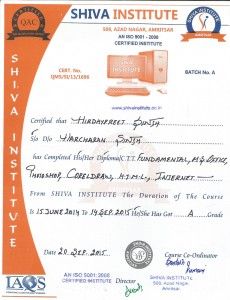 SHIVA INSTITUTE
QAC
505, AZAD NAGAR, AMRITSAR
AN ISO 9001 : 2008
CERTIFIED INSTITUTE
SHIVA INSTITUTE
CERT. No.
QMS/SI/13/1696
BATCH No. A
www.shivainstitute.co.in
SHIVA INSTITUTE
Certified that Hirdaypreet Singh
S/o D/o Harcharan Singh
has Completed His/Her Diploma/C.T.T. Fundamental, MS Office,
Photoshop, CorelDraw, H.T.M.L, Internet
From SHIVA INSTITUTE The Duration of The Course
is 15 June 2014 to 14 Sep. 2015 He/She Has Got A Grade
Date 20 Sep. 2015
Course Co-Ordinator
IAQS
AN ISO 9001:2008
CERTIFIED INSTITUTE
Director
SHIVA INSTITUTE
505, Azad Nagar,
Amritsar